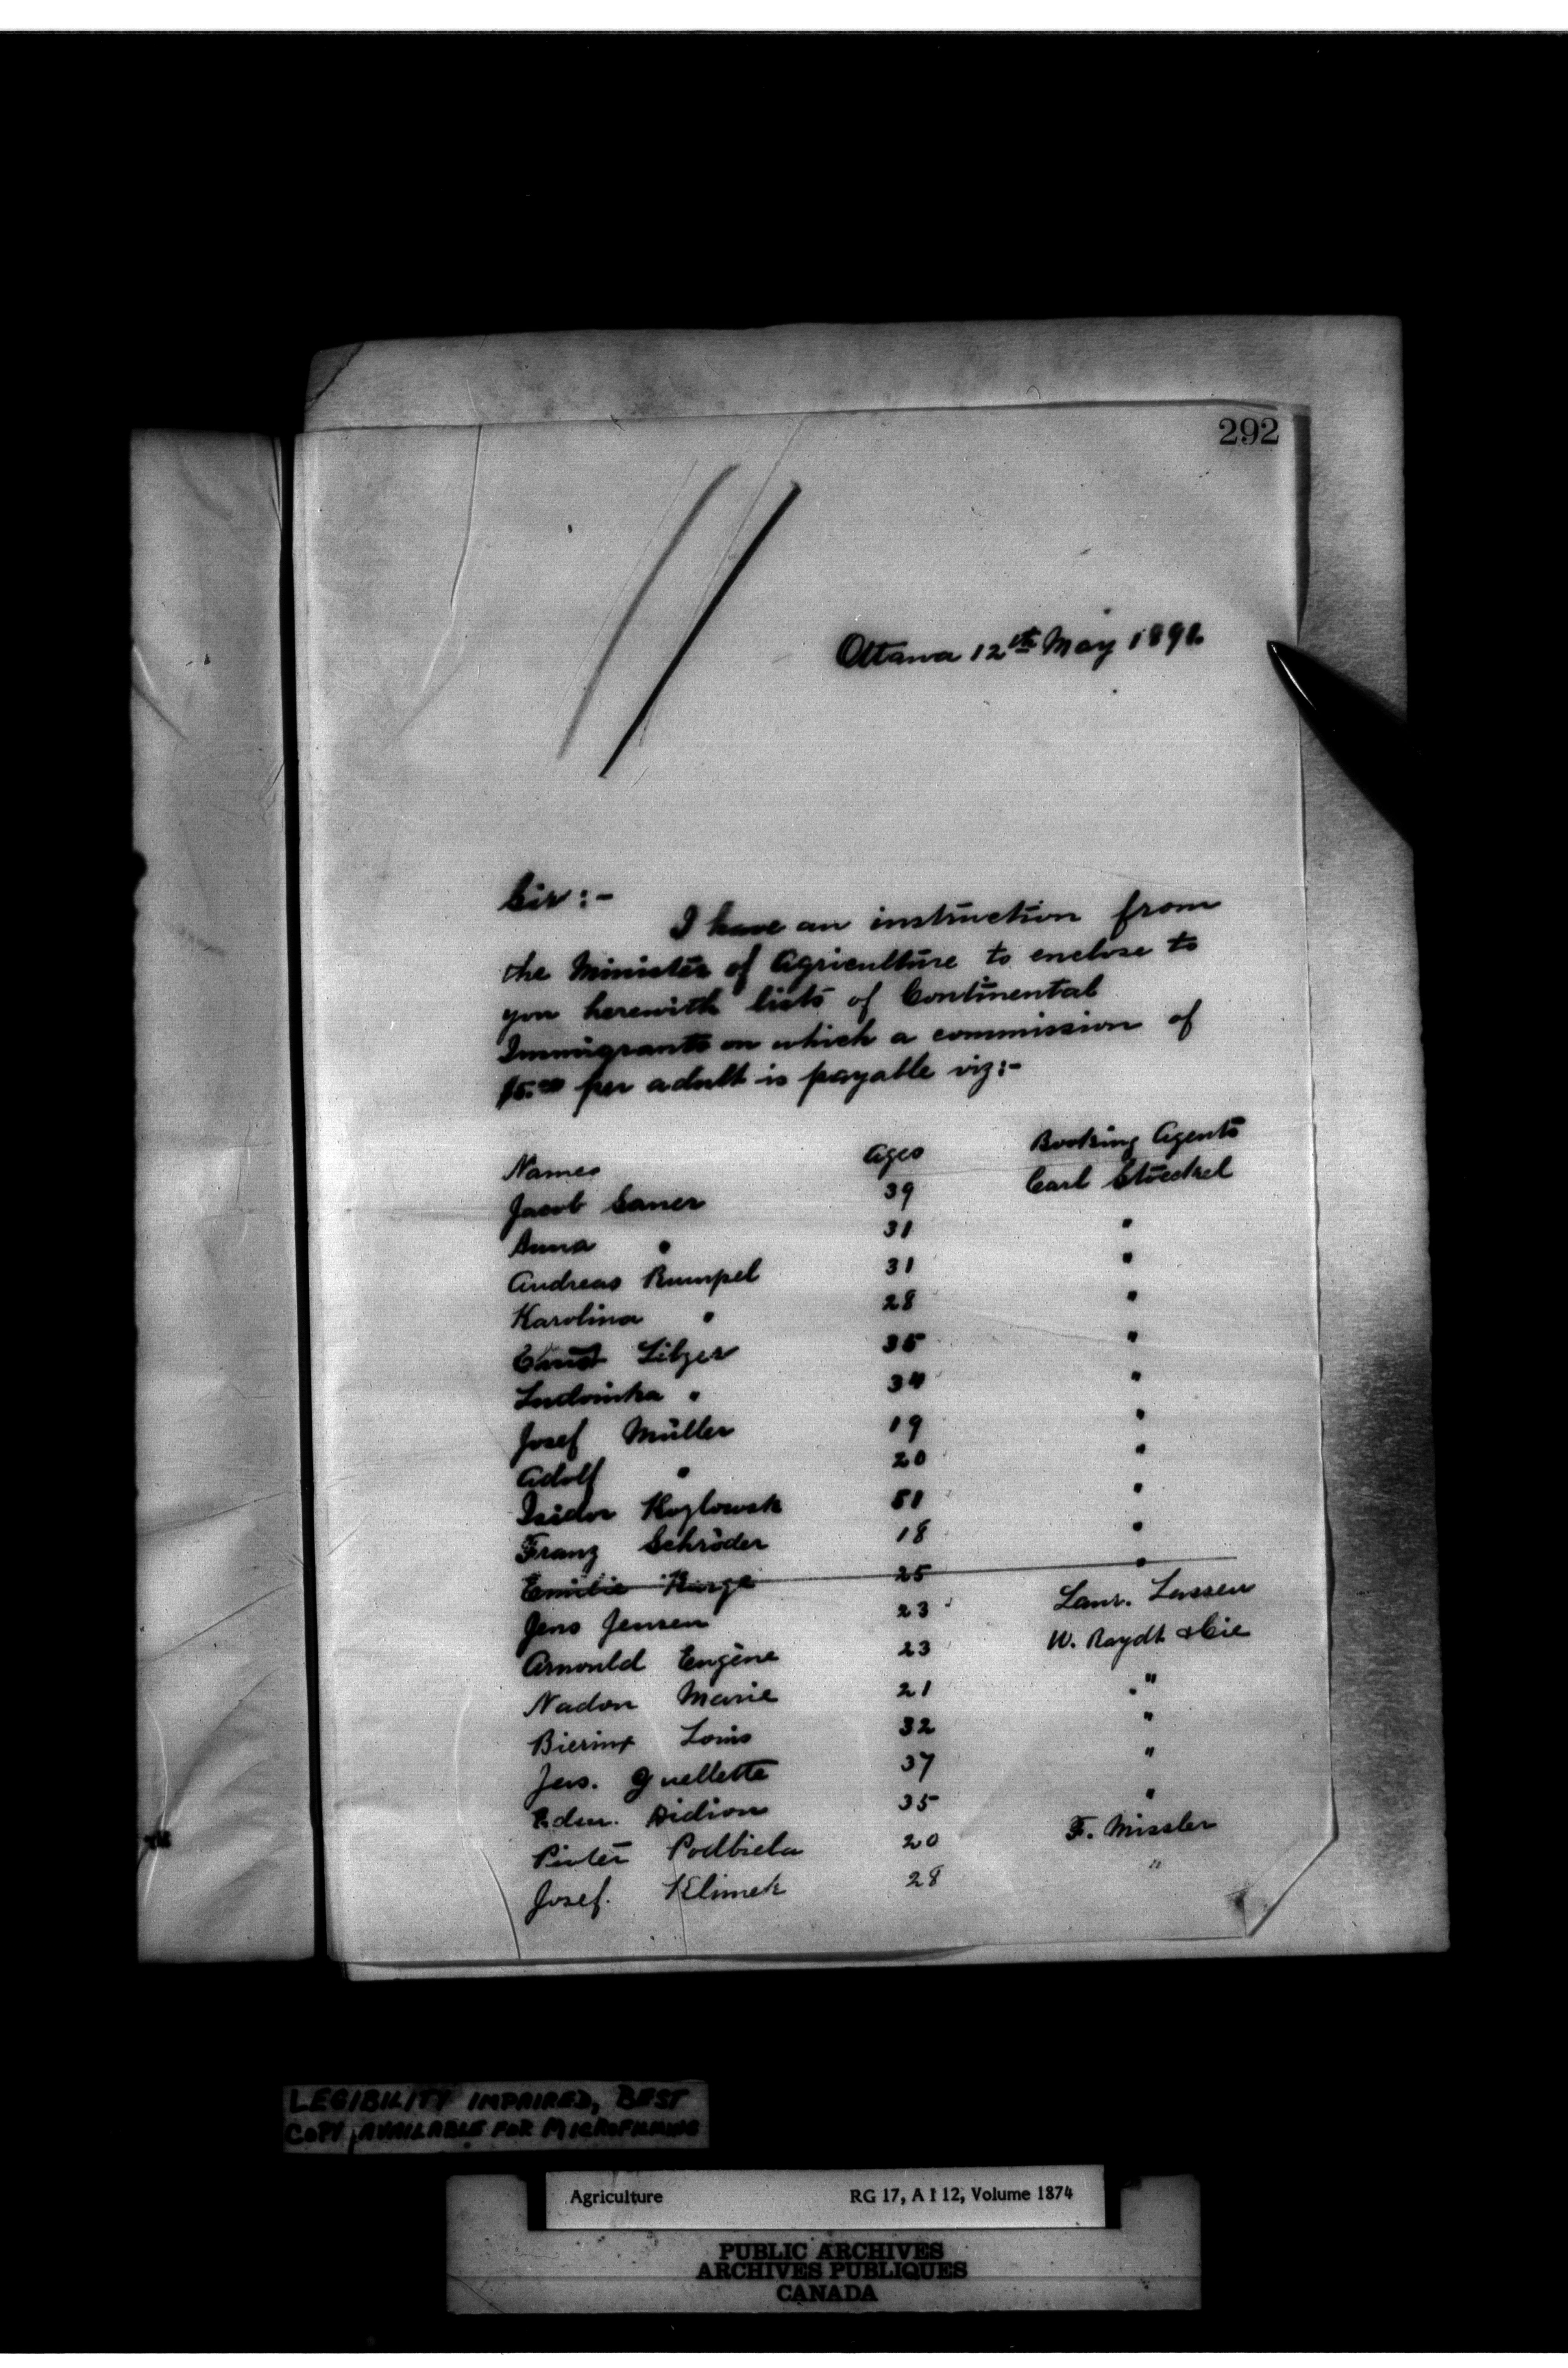 292
Ottawa 12th May 1892.
Sir:-
I have an instruction from
the Minister of Agriculture to enclose to
you herewith lists of Continental
Immigrants on which a commission of
$5.00 per adult is payable viz:-
Names Ages Booking Agents
Jacob Sauer 39 Carl Stoeckel
Anna " 31 "
Andreas Rumpel 31 "
Karolina " 28 "
Ernst Litzer 35 "
Ludwinka " 34 "
Josef Müller 19 "
Adolf " 20 "
Isidor Kozlowsk 51 "
Franz Schröder 18 "
Emilie 25 "
Jens Jensen 23 Laur. Lassen
Arnould Eugène 23 W. Raydt & Cie
Nadon Marie 21 "
Bierinx Louis 32 "
Jos. Guellette 37 "
Edm. Didion 35 "
Pioter Podbiela 20 F. Missler
Josef. Klimek 28 "
LEGIBILITY IMPAIRED, BEST
COPY AVAILABLE FOR MICROFILMING
Agriculture RG 17, A I 12, Volume 1874
PUBLIC ARCHIVES
ARCHIVES PUBLIQUES
CANADA